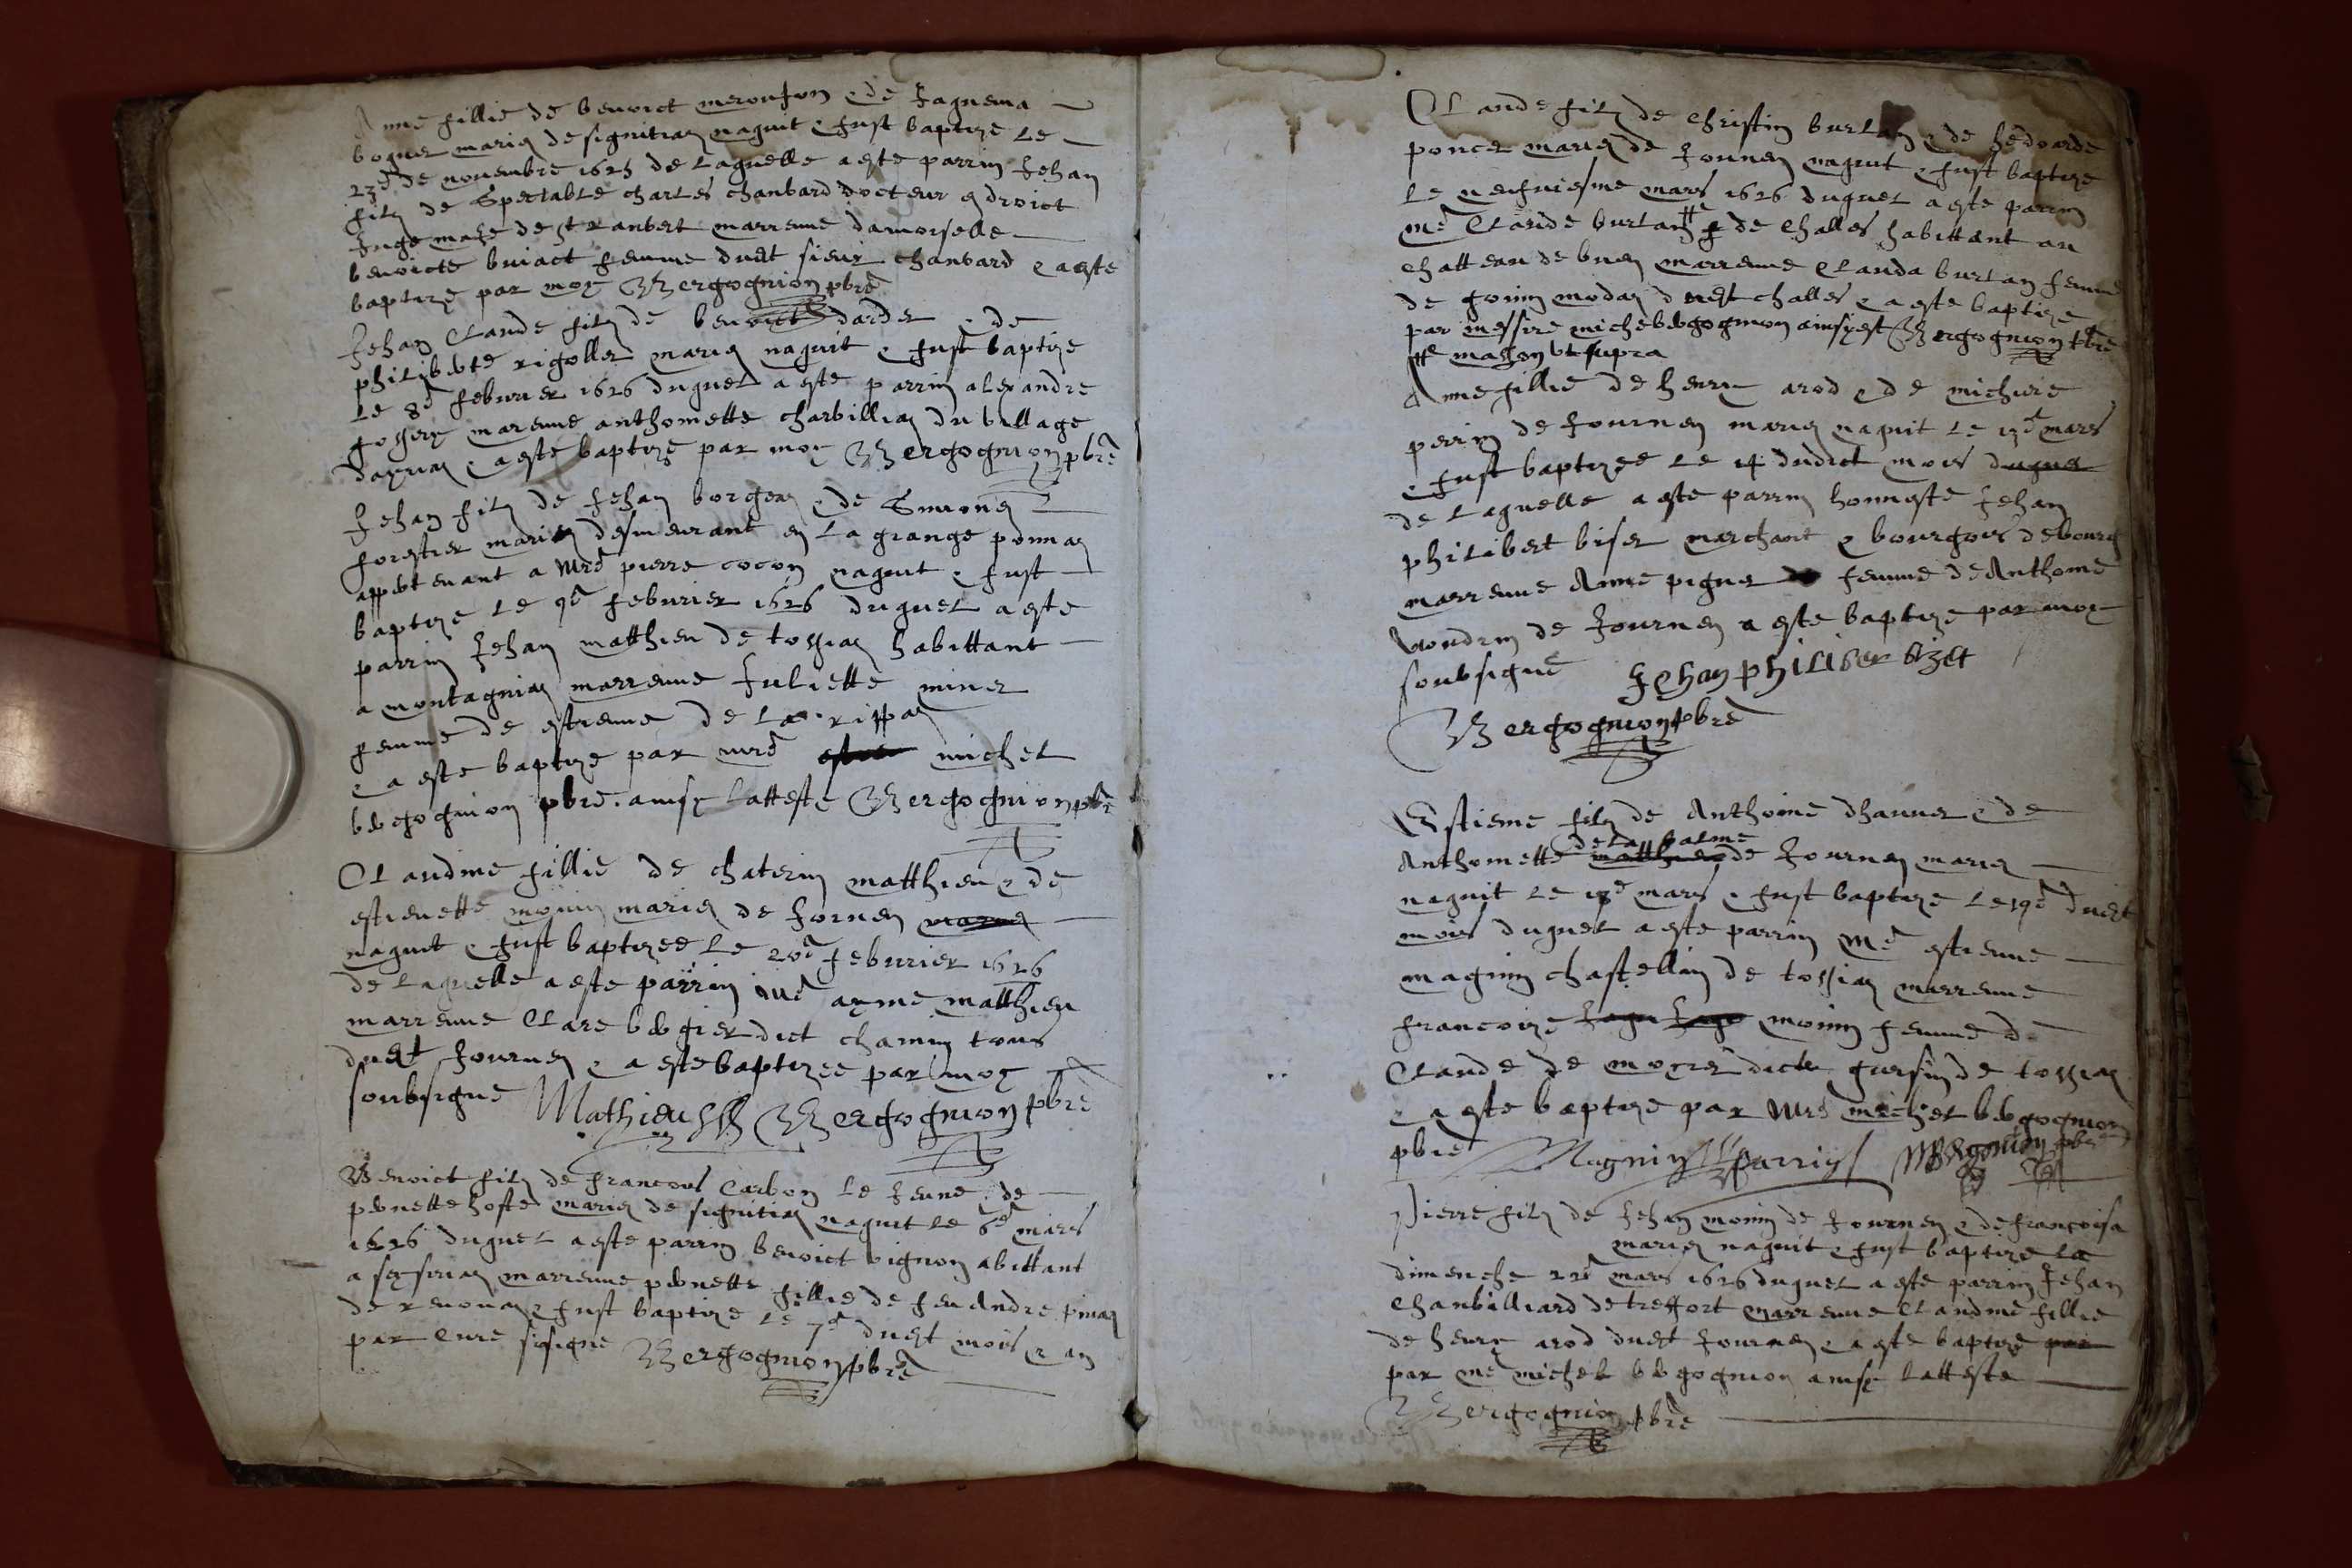 Anne fillie de benoict meronson & de Jaquema
boquet mariez de signitiaz naquit & fust baptize le
23e de novembre 1625 de laquelle a este parrin Jehan
filz de Spectable charles chanbard docteur en droict
Juge maje de st ranbert marrenne damoiselle
benoicte buiact femme dudt sieur chanbard & a este
baptize par moy Bergognion pbre
Jehan Claude filz de benoict dardet & de
philiberte rigollet mariez naquit & fust baptize
le 8e febvrier 1626 duquel a este parrin alexandre
marenne anthoinette charbilliaz du village
& a este baptize par moy Bergognion pbre
Jehan filz de Jehan borgeaz & de Simonez
forestier mariez desmeurant en la grange ponnaz
appertenant a Mre pierre cocon naquit & fust
baptize le 9e febvrier 1626 duquel a este
parrin Jehan matthieu de tossiaz habittant
a montagniaz marrenne Juliette minet
femme de estienne de la rippaz
& a este baptize par mre michel
bergognion pbre. ainsy latteste Bergognion pbre
Claudine fillie de chaterin matthieu & de
estienette monin mariez de Jornaz mariez
naquit & fust baptizee le 20e febvrier 1626
de laquelle a este parrin Me ayme matthieu
marrenne Clare bergier dict chamin tous
dudt Journaz & a este baptizee par moy
soubsigne Mathieu Bergognion pbre
Benoict filz de francois Carbon le Jeune & de
pernette hoste mariez de signitiaz naquit le 6e mars
1626 duquel a este parrin benoict vignon abittant
a seysiriaz marrenne pernette fillie de feu Andre pinaz
de revonaz & fust baptize le 7e dudt mois & an
par cure sisigne Bergognion pbre
Claude filz de Christin burlaz & de hedoarde
poncet mariez de Journaz naquit & fust baptize
le neufviesme mars 1626 duquel a este parrin
Me Claude burlaz de Challes habittant au
chatteau de buen marrenne Clauda burlaz femme
de monin modaz dudt challes & a este baptize
par messire michel bergognion ainsy est Bergognion pbre
masson ut supra
Anne fillie de henry arod & de michiere
perrin de Journaz mariez naquit le 13e mars
& fust baptizee le 14 dudict mois duquel
de laquelle a este parrin honneste Jehan
philibert biset marchant & bourgois de bourg
marrenne Anne piquet femme de Anthoine
voudrin de Journaz a este baptize par moy
soubsigne Jehan philiber bizet
Bergognion pbre
Estienne filz de Anthoine dhannet & de
de la balme
Anthoinette matthieu de Journaz mariez
naquit le 18e mars & fust baptize le 19e dudt
mois duquel a este parrin Me estienne
magnin chastellin de tossiaz marrenne
francoize monin femme de
Claude de moyriet dicte gursin de tossiaz
& a este baptize par Mre michel bergognion
pbre Magnin parrin MBergonion pbre
Pierre filz de Jehan monin de Journaz & de francoisa
mariez naquit & fust baptize le
dimenche 22e mars 1626 duquel a este parrin Jehan
Chanbilliard de treffort marrenne Claudine fillie
de henry arod dudt Journaz & a este baptize par
par me michel bergognion ainsy latteste
Bergognion pbre